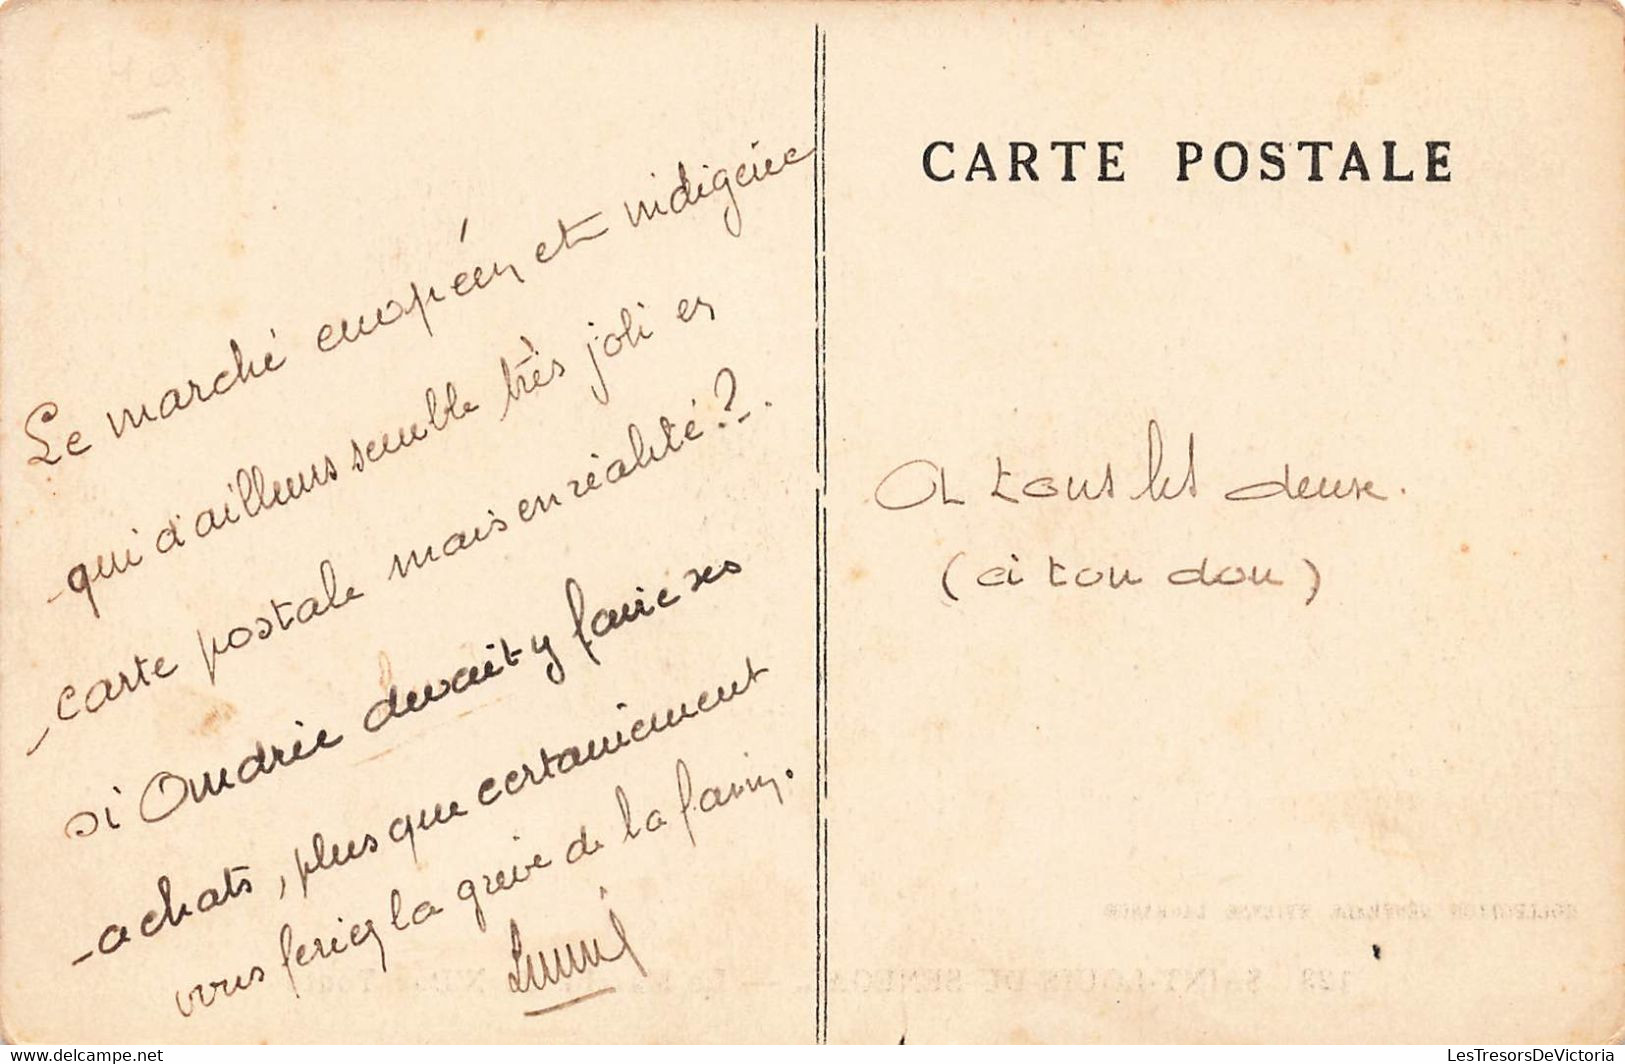 Le marché européen et indigène
qui d'ailleurs semble très joli en
carte postale mais en réalité ?.
si Andrée devait y faire ses
achats, plus que certainement
vous feriez la grève de la faim.
CARTE POSTALE
A tous les deux.
(ci ton don)
COLLECTION GÉNÉRALE
SAINT-LOUIS DU SENEGAL
LesTresorsDeVictoria
https://www.delcampe.net